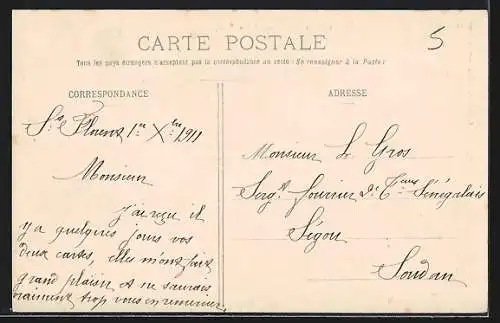 CARTE POSTALE
5
Tous les pays étrangers n'acceptent pas la correspondance au recto : Se renseigner à la Poste
CORRESPONDANCE
ADRESSE
1er Xbre 1911
Monsieur
J'ai reçu il
y a quelques jours vos
deux cartes, elles m'ont fait
grand plaisir et ne saurais
vraiment trop vous en remercier
Monsieur Le Gros
Sergt fourrier 2e Teurs Sénégalais
Ségou
Soudan